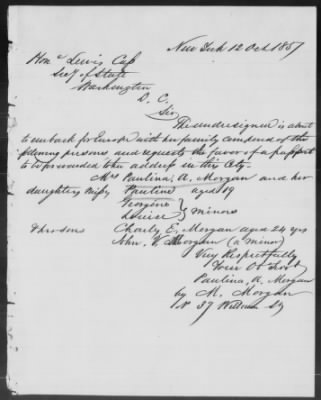 New York 12 Oct 1857
Honble Lewis Cass
Secy of State
Washington
D. C.
Sir
The undersigned is about
to embark for Europe with her family composed of the
following persons and requests the favor of a passport
to be forwarded to her address in this City.
Mrs Paulina, A. Morgan and her
daughters Misses Pauline aged 19
Georgine
Louise } minors
Charly E. Morgan aged 24 yrs
John, V. Morgan (a minor)
Very Respectfully
Your Ob Servt
Paulina, A, Morgan
by M. Morgan
N 37 William St